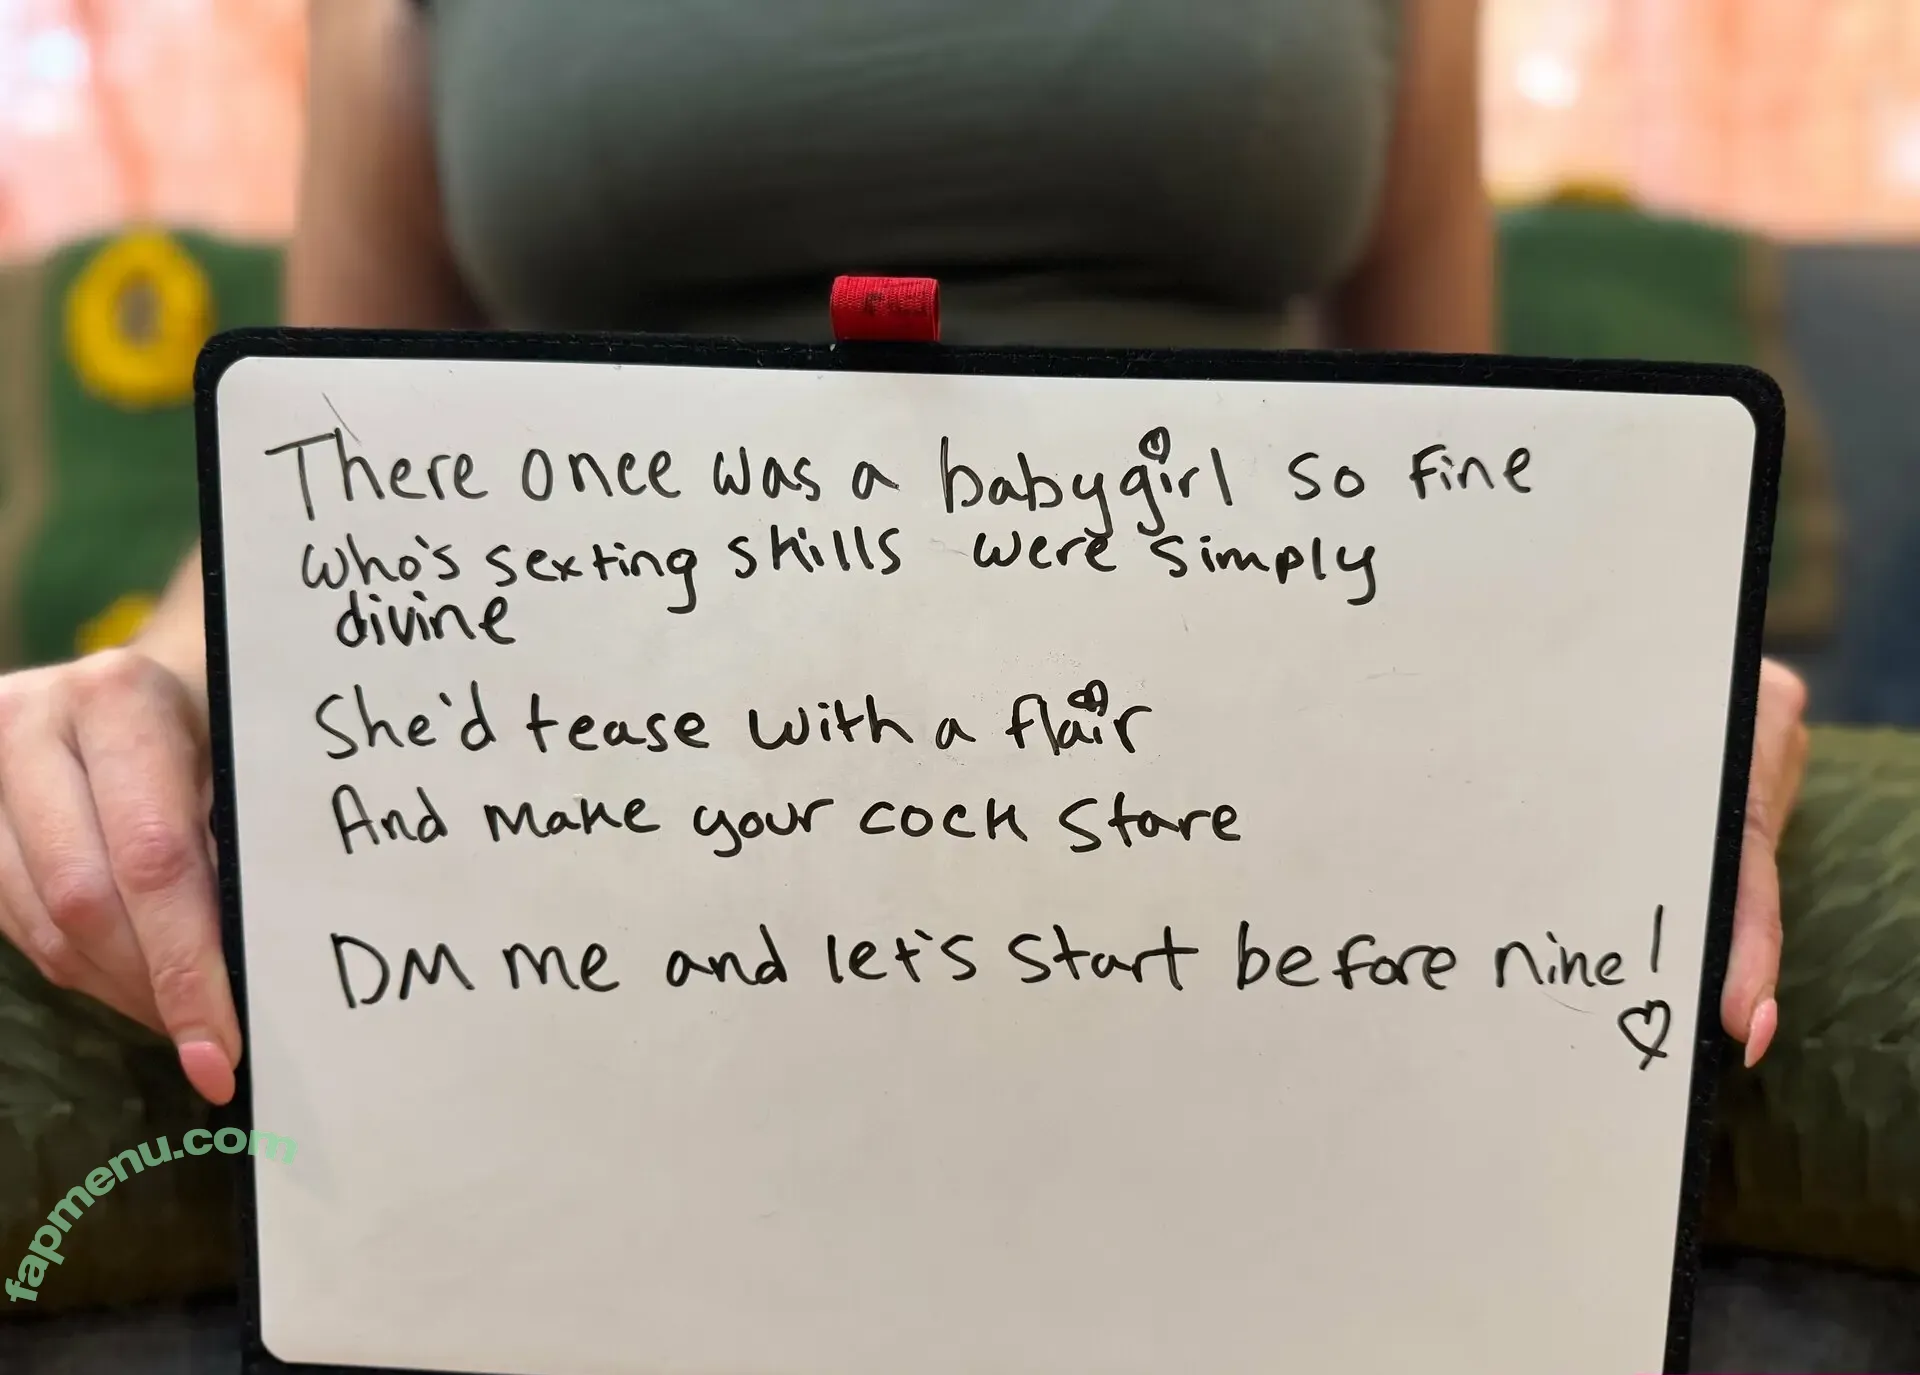 There once was a babygirl so fine
who's sexting skills were simply
divine
She'd tease with a flair
And make your cock stare
DM me and let's start before nine!
fapmenu.com